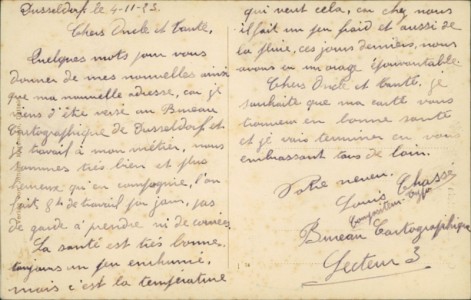 Dusseldorf le 4-11-23.
Chers Oncle et tante,
Quelques mots pour vous
donner de mes nouvelles ainsi
que ma nouvelle adresse, car je
viens d'être versé au Bureau
Cartographique de Dusseldorf et
je travail à mon métier, nous
sommes très bien et plus
heureux qu'en compagnie, l'on
fait 8h de travail par jour, pas
de garde à prendre ni de corvées.
La santé est très bonne,
toujours un peu enrhumé,
mais c'est la température
qui veut cela, car chez nous
il fait un peu froid et aussi de
la pluie, ces jours derniers, nous
avons eu un orage épouvantable.
Chers Oncle et tante, je
souhaite que ma carte vous
trouve en bonne santé
et je vais terminer en vous
embrassant tous de loin.
Votre neveu.
Louis Chassé
Compositeur-typo
Bureau Cartographique
Secteur 3